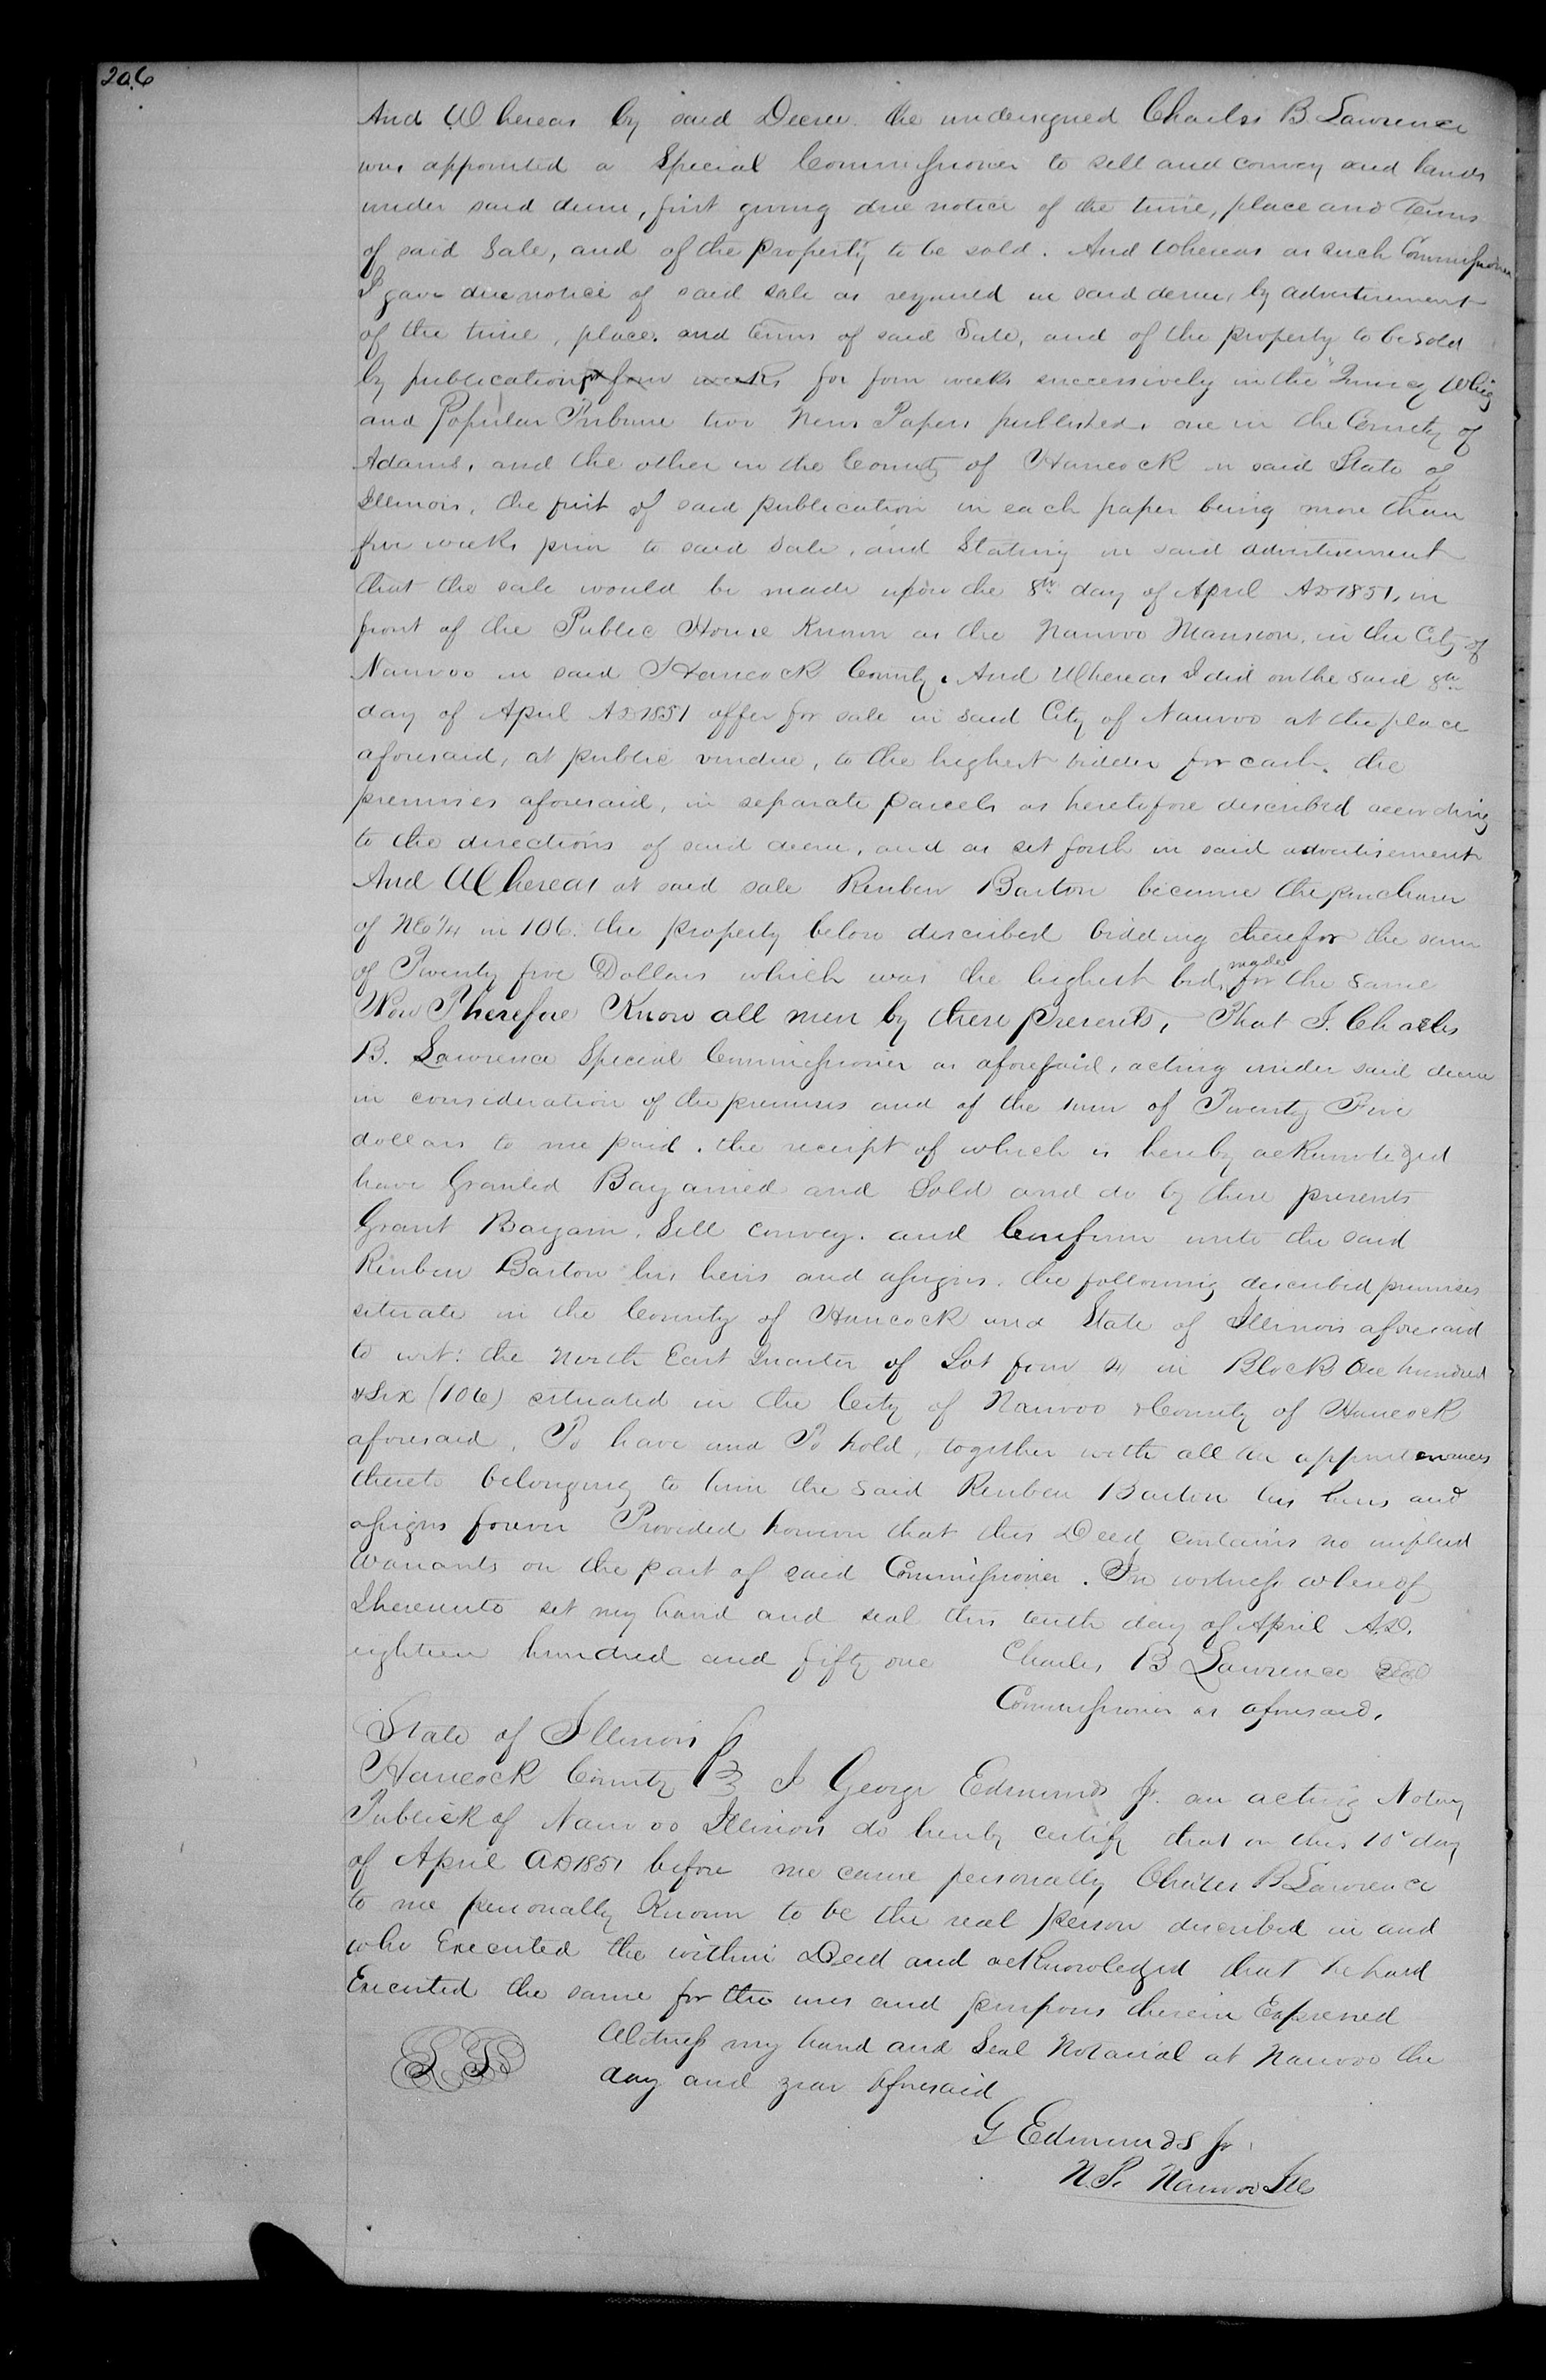 206
And Whereas by said Decree the undersigned Charles B. Lawrence
was appointed a Special Commissioner to sell and convey said lands
under said decree, first giving due notice of the time, place and terms
of said Sale, and of the property to be sold. And Whereas as such Commissioner
I gave due notice of said sale as required in said decree, by advertisement
of the time, place, and terms of said Sale, and of the property to be sold
by publication for four weeks for four weeks successively in the "Quincy Whig
and Popular Tribune two News Papers published, one in the County of
Adams, and the other in the County of Hancock in said State of
Illinois, the first of said publication in each paper being more than
five weeks prior to said sale, and Stating in said advertisement
that the sale would be made upon the 8th day of April AD 1851, in
front of the Public House Known as the Nauvoo Mansion, in the City of
Nauvoo in said Hancock County. And Whereas I did on the said 8th
day of April AD 1851 offer for sale in said City of Nauvoo at the place
aforesaid, at public vendue, to the highest bidder for cash, the
premises aforesaid, in separate parcels as heretofore described according
to the directions of said decree, and as set forth in said advertisement
And Whereas at said sale Reuben Barton became the purchaser
of NE 1/4 in 106. the property below described bidding therefor the sum
of Twenty five Dollars which was the highest bid, made for the same
Now Therefore Know all men by these presents, That I. Charles
B. Lawrence Special Commissioner as aforesaid, acting under said decree
in consideration of the premises and of the sum of Twenty Five
dollars to me paid, the receipt of which is hereby acknowledged
have Granted Bargained and Sold and do by these presents
Grant Bargain, Sell convey, and Confirm unto the said
Reuben Barton his heirs and assigns, the following described premises
situate in the County of Hancock and State of Illinois aforesaid
to wit: the North East Quarter of Lot four 4 in Block One hundred
& Six (106) situated in the City of Nauvoo & County of Hancock
aforesaid, To have and To hold, together with all the appurtenances
thereto belonging to him the said Reuben Barton his heirs and
assigns forever Provided however that this Deed contains no implied
warrants on the part of said Commissioner. In witness whereof
I hereunto set my hand and seal this tenth day of April A.D.
eighteen hundred and fifty one Charles B Lawrence Seal
Commissioner as aforesaid,
State of Illinois
Hancock County I George Edmunds Jr. an acting Notary
Publick of Nauvoo Illinois do hereby certify that on this 10th day
of April AD 1851 before me came personally Charles B Lawrence
to me personally Known to be the real person described in and
who Executed the within Deed and acknowledged that he had
Executed the same for the uses and purposes therein Expressed
Witness my hand and Seal Notarial at Nauvoo the
day and year aforesaid
G Edmunds Jr.
N.P. Nauvoo Ills